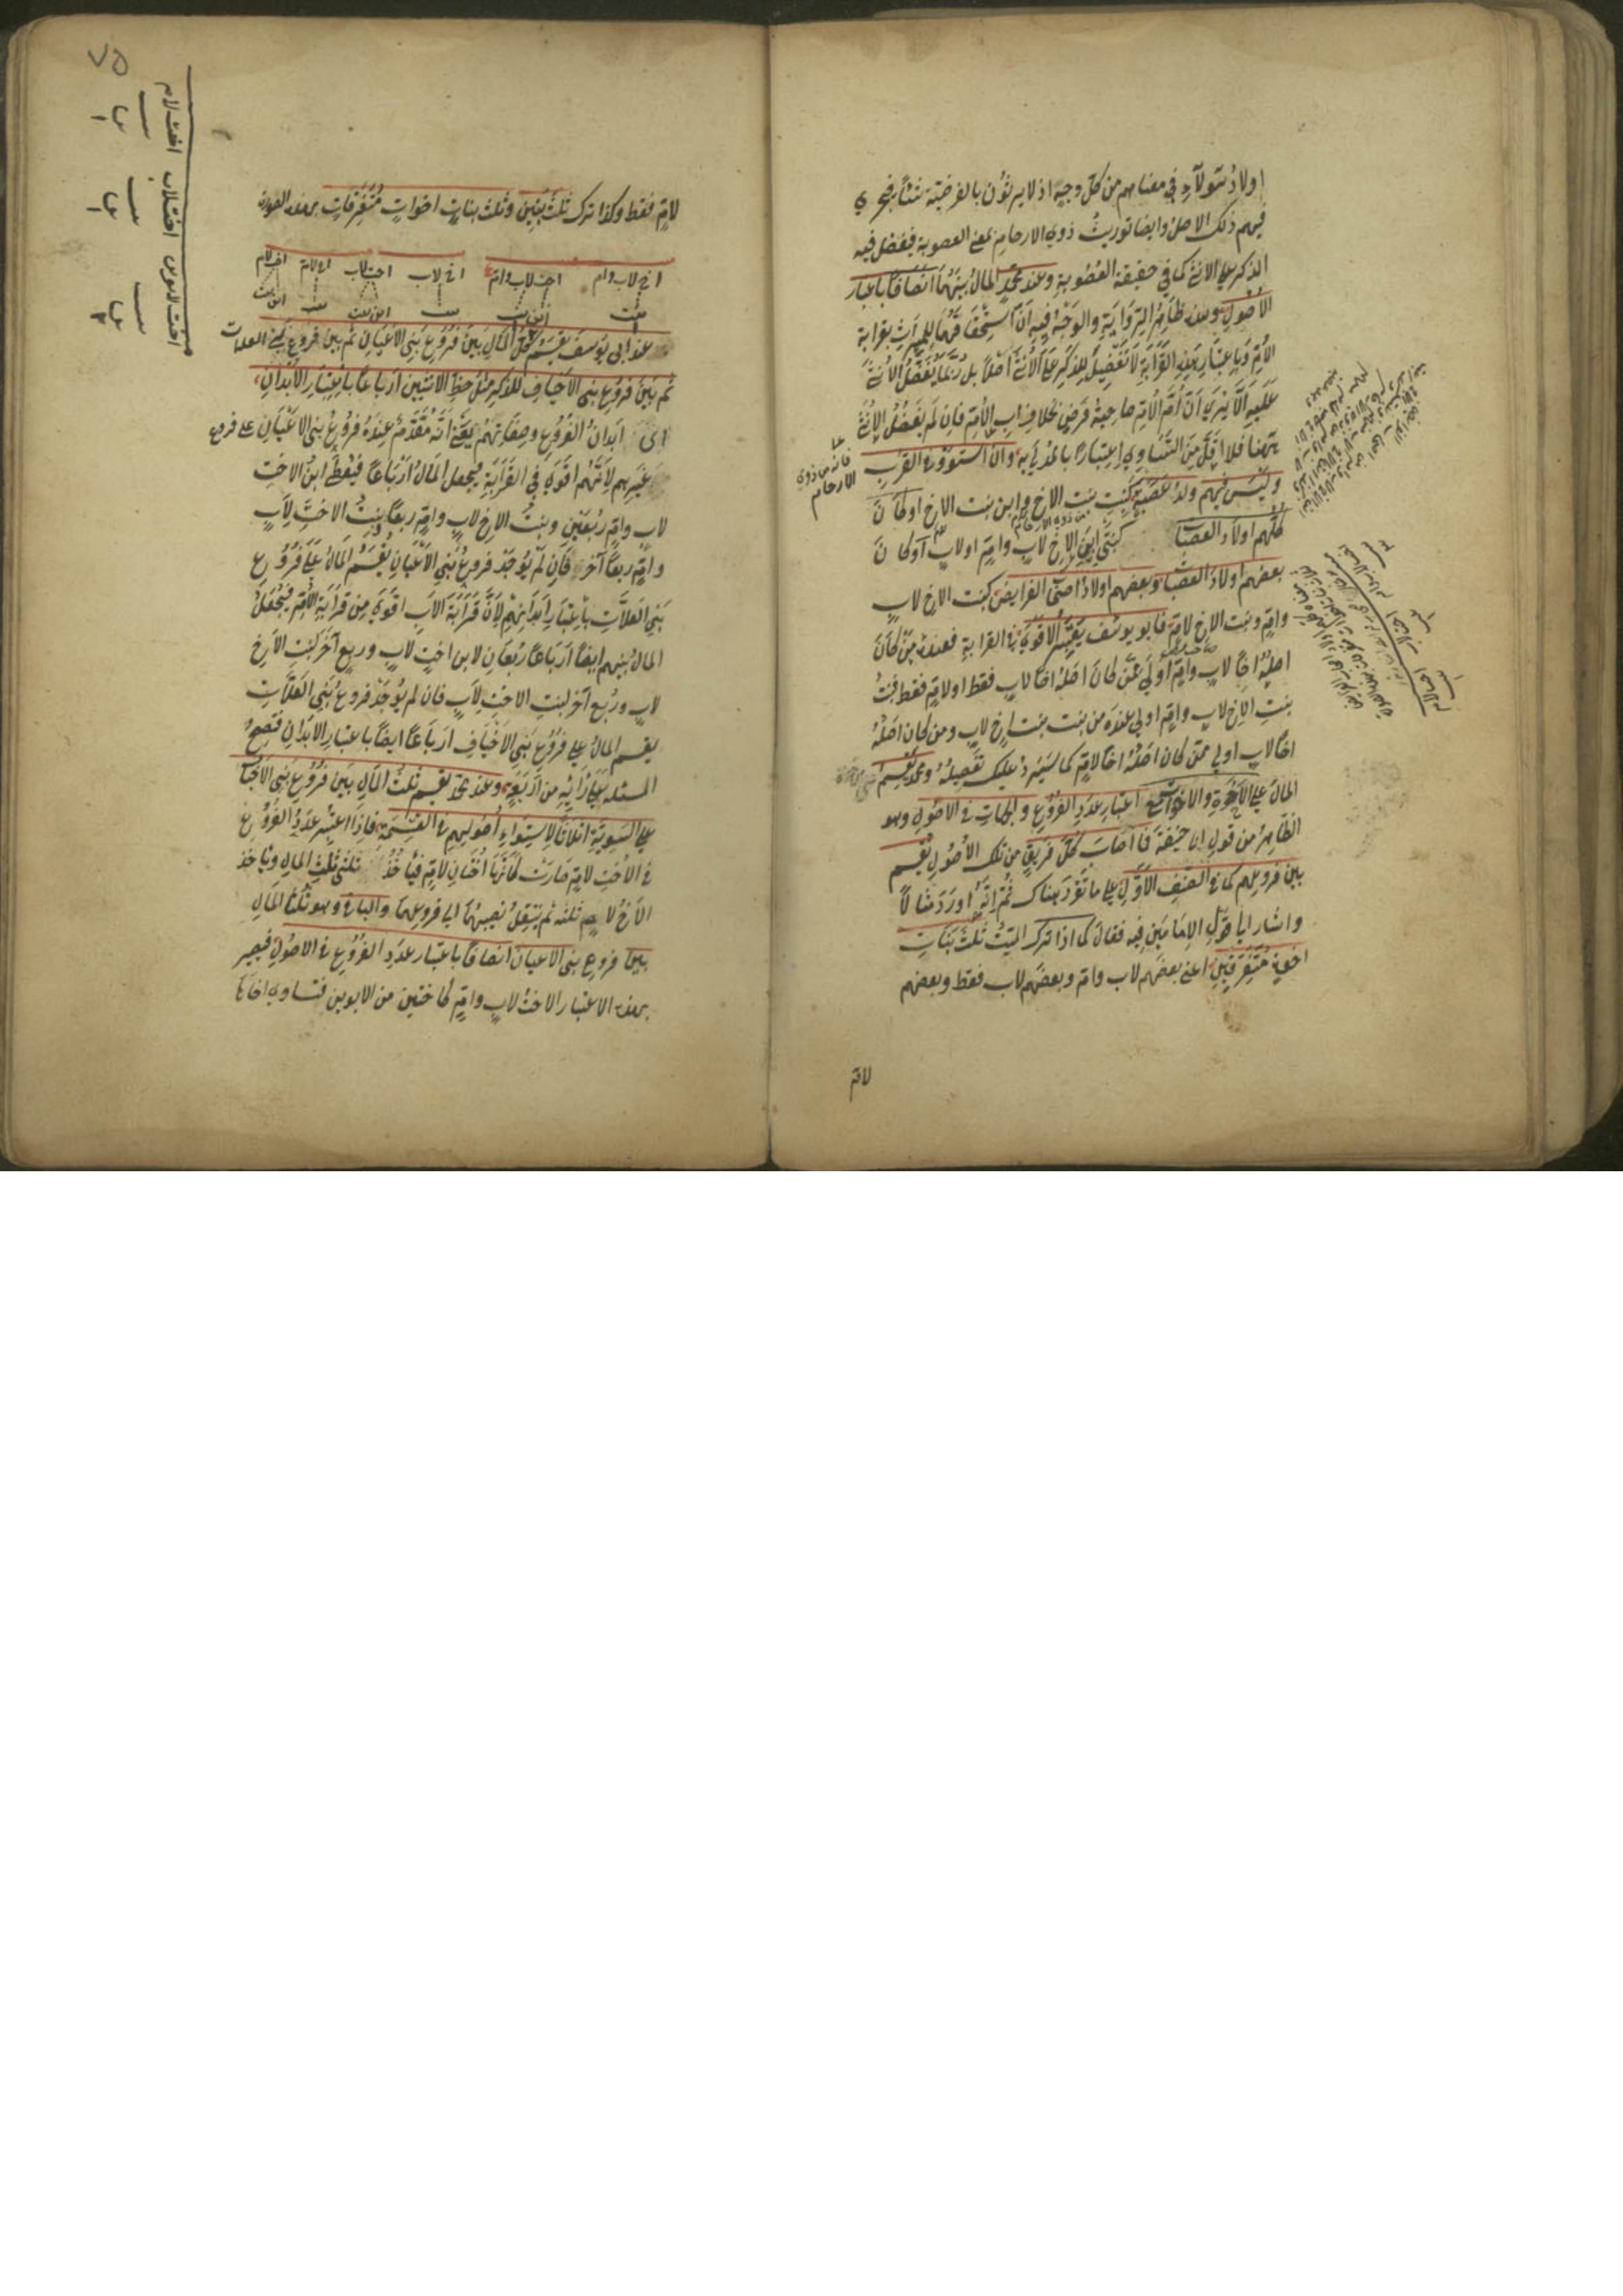 اولاد سوآء في معناهم من كلّ وجه اذ لا يرثون بالفرضيّة شيئاً فيجري
فيهم ذلك الاصل وايضا توريث ذوي الارحام بمعني العصوبة فيفضل فيه
الذكر علي الانثي كما في حقيقة العصوبة وعند محمّد المال بينهما انصافاً باعتبار
الاصول وهذا ظاهر الرواية والوجه فيه انّ استحقاقهما للميراث بقرابة
الامّ وباعتبار هذه القرابة لا تفضيل للذكر علي الانثي اصلاً بل ربّما تفضل الانثي
عليه الا يري ان امّ الامّ صاحبة فرض بخلاف اب الامّ فان لم يفضل الانثي
ههنا فلا اقلّ من التساوي اعتباراً بالمدلي به وان استووا في القرب
وليس فيهم ولد عصبة كبنت بنت الاخ وابن بنت الاخ او كان
كلّهم اولاد العصبات كبنتي ابني الاخ لاب وامّ او لاب او كان
بعضهم اولاد العصبات وبعضهم اولاد اصحاب الفرايض كبنت الاخ لاب
وامّ وبنت الاخ لامّ فابو يوسف يعتبر الاقوي في القرابة فعنده من كان
اصله اخاً لاب وامّ اولي ممّن كان اصله اخاً لاب فقط او لامّ فقط فبنت
بنت الاخ لاب وامّ اولي عنده من بنت بنت اخ لاب ومن كان اصله
اخاً لاب اولي ممّن كان اصله اخاً لامّ كما سيرد عليك تفصيله ومحمّد يقسم
المال علي الاخوة والاخوات مع اعتبار عدد الفروع والجهات في الاصول وهو
الظاهر من قول ابي حنيفة فما اصاب كلّ فريق من تلك الاصول يقسم
بين فروعهم كما في الصنف الاوّل علي ما تقرّر هناك ثمّ انّه اورد مثالاً
واشار الي قول الامامين فيه فقال كما اذا ترك الميّت ثلث بنات
اخوة متفرّقين اعني بعضهم لاب وامّ وبعضهم لاب فقط وبعضهم
لامّ
فانه من ذوي
الارحام
٧٥
لامّ فقط وكذا ترك ثلث بنين وثلث بنات اخوات متفرّقات بهذه الصورة
اخ لاب وام اخت لاب وام اخ لاب اخت لاب اخ لام اخت لام
بنت ابن بنت بنت ابن بنت بنت ابن بنت
عند ابي يوسف يقسم كلّ المال بين فروع بني الاعيان ثم بين فروع بني العلات
ثم بين فروع بني الاخياف للذكر مثل حظّ الانثيين ارباعاً باعتبار الابدان
اي ابدان الفروع وصفاتهم يعني انّه مقدّم عنده فروع بني الاعيان علي فروع
غيرهم لانّهم اقوي في القرابة فيجعل المال ارباعاً فيعطي ابن الاخت
لاب وامّ ربعين وبنت الاخ لاب وامّ ربعاً وبنت الاخت لاب
وامّ ربعاً آخر فان لم يوجد فروع بني الاعيان يقسم المال علي فروع
بني العلّات باعتبار ابدانهم لانّ قرابة الاب اقوي من قرابة الامّ فيجعل
المال بينهم ايضاً ارباعاً ربعان لابن اخت لاب وربع آخر لبنت الاخ
لاب وربع آخر لبنت الاخت لاب فان لم يوجد فروع بني العلّات
يقسم المال علي فروع بني الاخياف ارباعاً ايضاً باعتبار الابدان فتصحّ
المسئلة علي رأيه من اربعة وعند محمّد يقسم ثلث المال بين فروع بني الاخياف
علي السوية اثلاثاً لاستواء اصولهم في القسمة فاذا اعتبر عدد الفروع
في الاخت لامّ صارت كانّها اختان لامّ فيأخذ ثلثي ثلث المال ويأخذ
الاخ لامّ ثلثه ثم ينتقل نصيبهما الي فروعهما والباقي وهو ثلثا المال
بين فروع بني الاعيان انصافاً باعتبار عدد الفروع في الاصول فيصير
بهذا الاعتبار الاخت لاب وامّ كاختين من الابوين فتساوي اخاها
اخت لابوين اخت لاب اخت لام